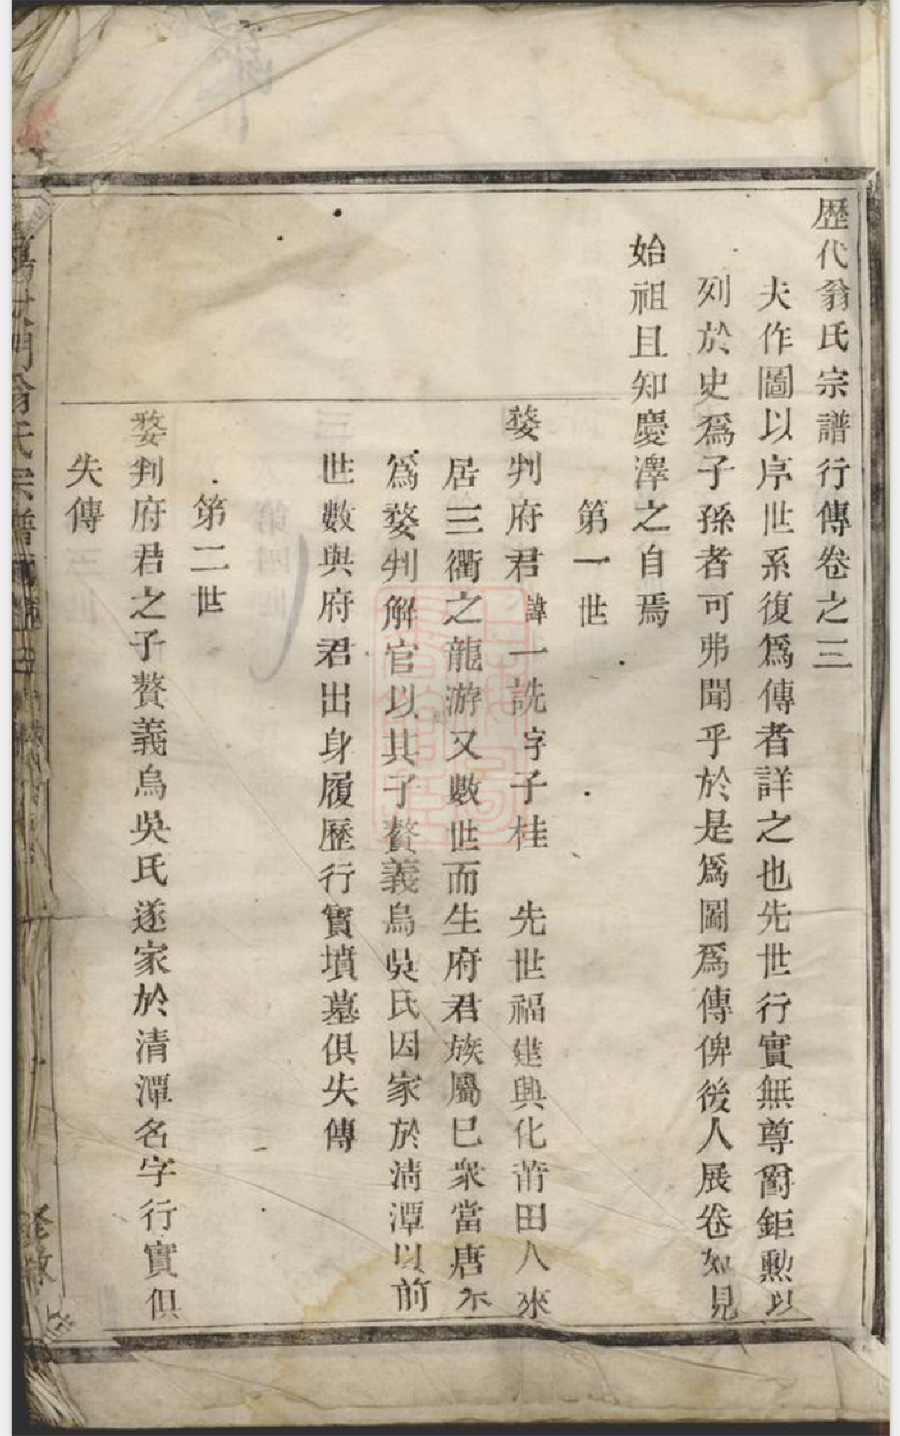 歷代翁氏宗譜行傳卷之三
夫作圖以序世系復爲傳者詳之也先世行實無尊爵鉅勲以
列於史爲子孫者可弗聞乎於是爲圖爲傳俾後人展卷如見
始祖且知慶澤之自焉
第一世
婺判府君諱一詵字子桂 先世福建興化莆田人來
居三衢之龍游又數世而生府君族屬已衆當唐末
爲婺判解官以其子贅義烏吳氏因家於清潭以前
世數與府君出身履歷行實墳墓俱失傳
第二世
婺判府君之子贅義烏吳氏遂家於清潭名字行實俱
失傳
門翁氏宗譜